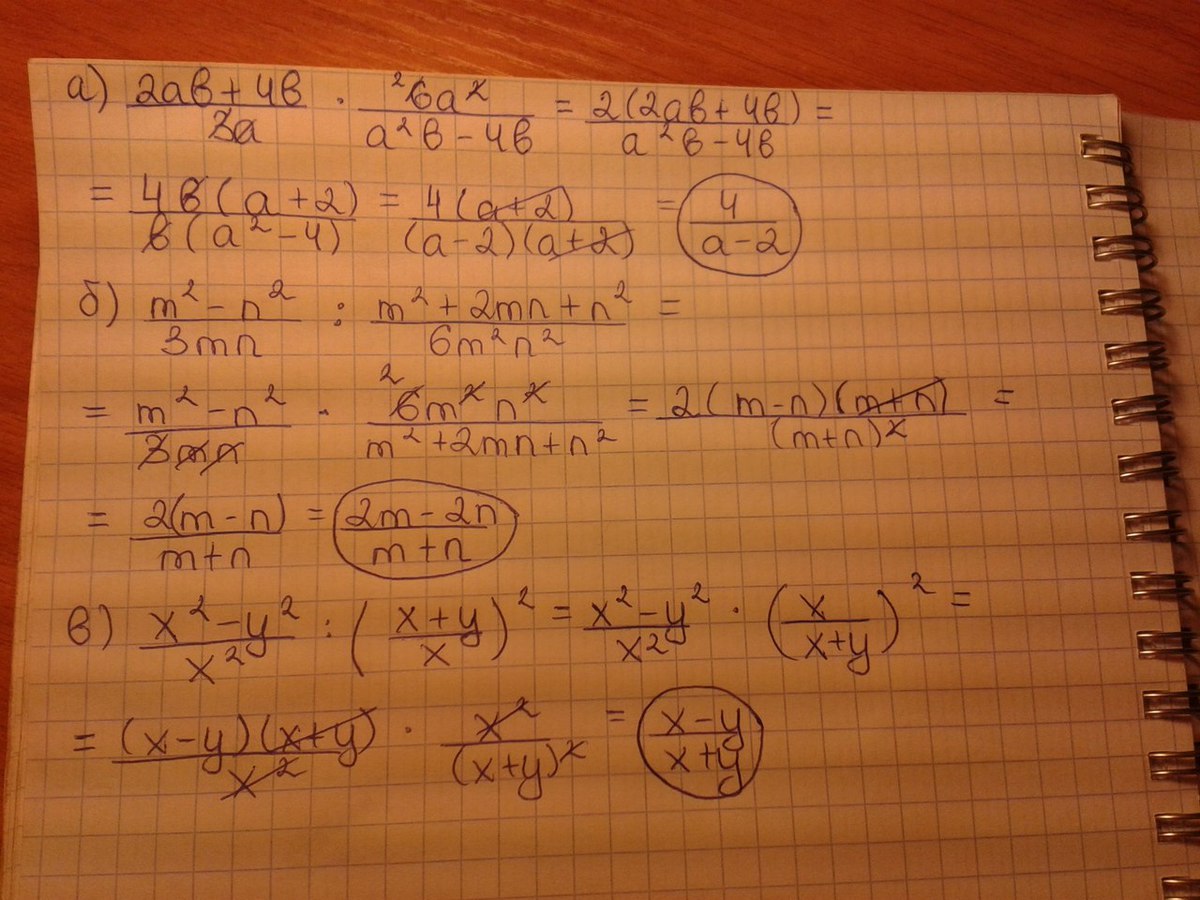 а) (2ab + 4b)/(3a) · (²6a²)/(a²b − 4b) = (2(2ab + 4b))/(a²b − 4b) =
= (4b(a + 2))/(b(a² − 4)) = (4(a + 2))/((a − 2)(a + 2)) = 4/(a − 2)
б) (m² − n²)/(3mn) : (m² + 2mn + n²)/(6m²n²) =
= (m² − n²)/(3mn) · (²6m²n²)/(m² + 2mn + n²) = (2(m − n)(m + n))/((m + n)²) =
= (2(m − n))/(m + n) = (2m − 2n)/(m + n)
в) (x² − y²)/(x²) : ((x + y)/x)² = (x² − y²)/(x²) · (x/(x + y))² =
= ((x − y)(x + y))/(x²) · (x²)/((x + y)²) = (x − y)/(x + y)